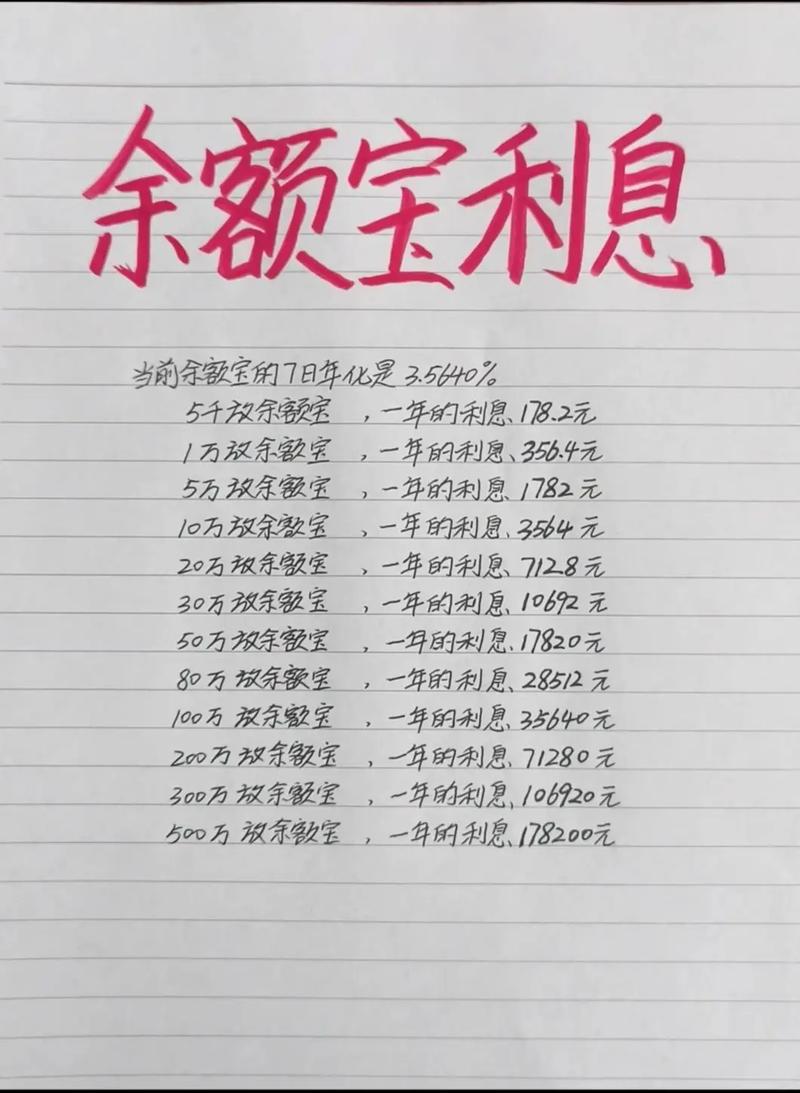 余额宝利息
当前余额宝的7日年化是3.5640%
5千放余额宝,一年的利息、178.2元
1万放余额宝,一年的利息、356.4元
5万放余额宝,一年的利息、1782元
10万放余额宝,一年的利息、3564元
20万放余额宝,一年的利息、7128元
30万放余额宝,一年的利息、10692元
50万放余额宝,一年的利息、17820元
80万放余额宝,一年的利息、28512元
100万放余额宝,一年的利息、35640元
200万放余额宝,一年的利息、71280元
300万放余额宝,一年的利息、106920元
500万放余额宝,一年的利息、178200元